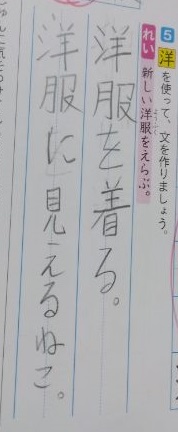 5 洋を使って、文を作りましょう。
れい 新しい洋服をえらぶ。
洋服を着る。
洋服に見えるねこ。